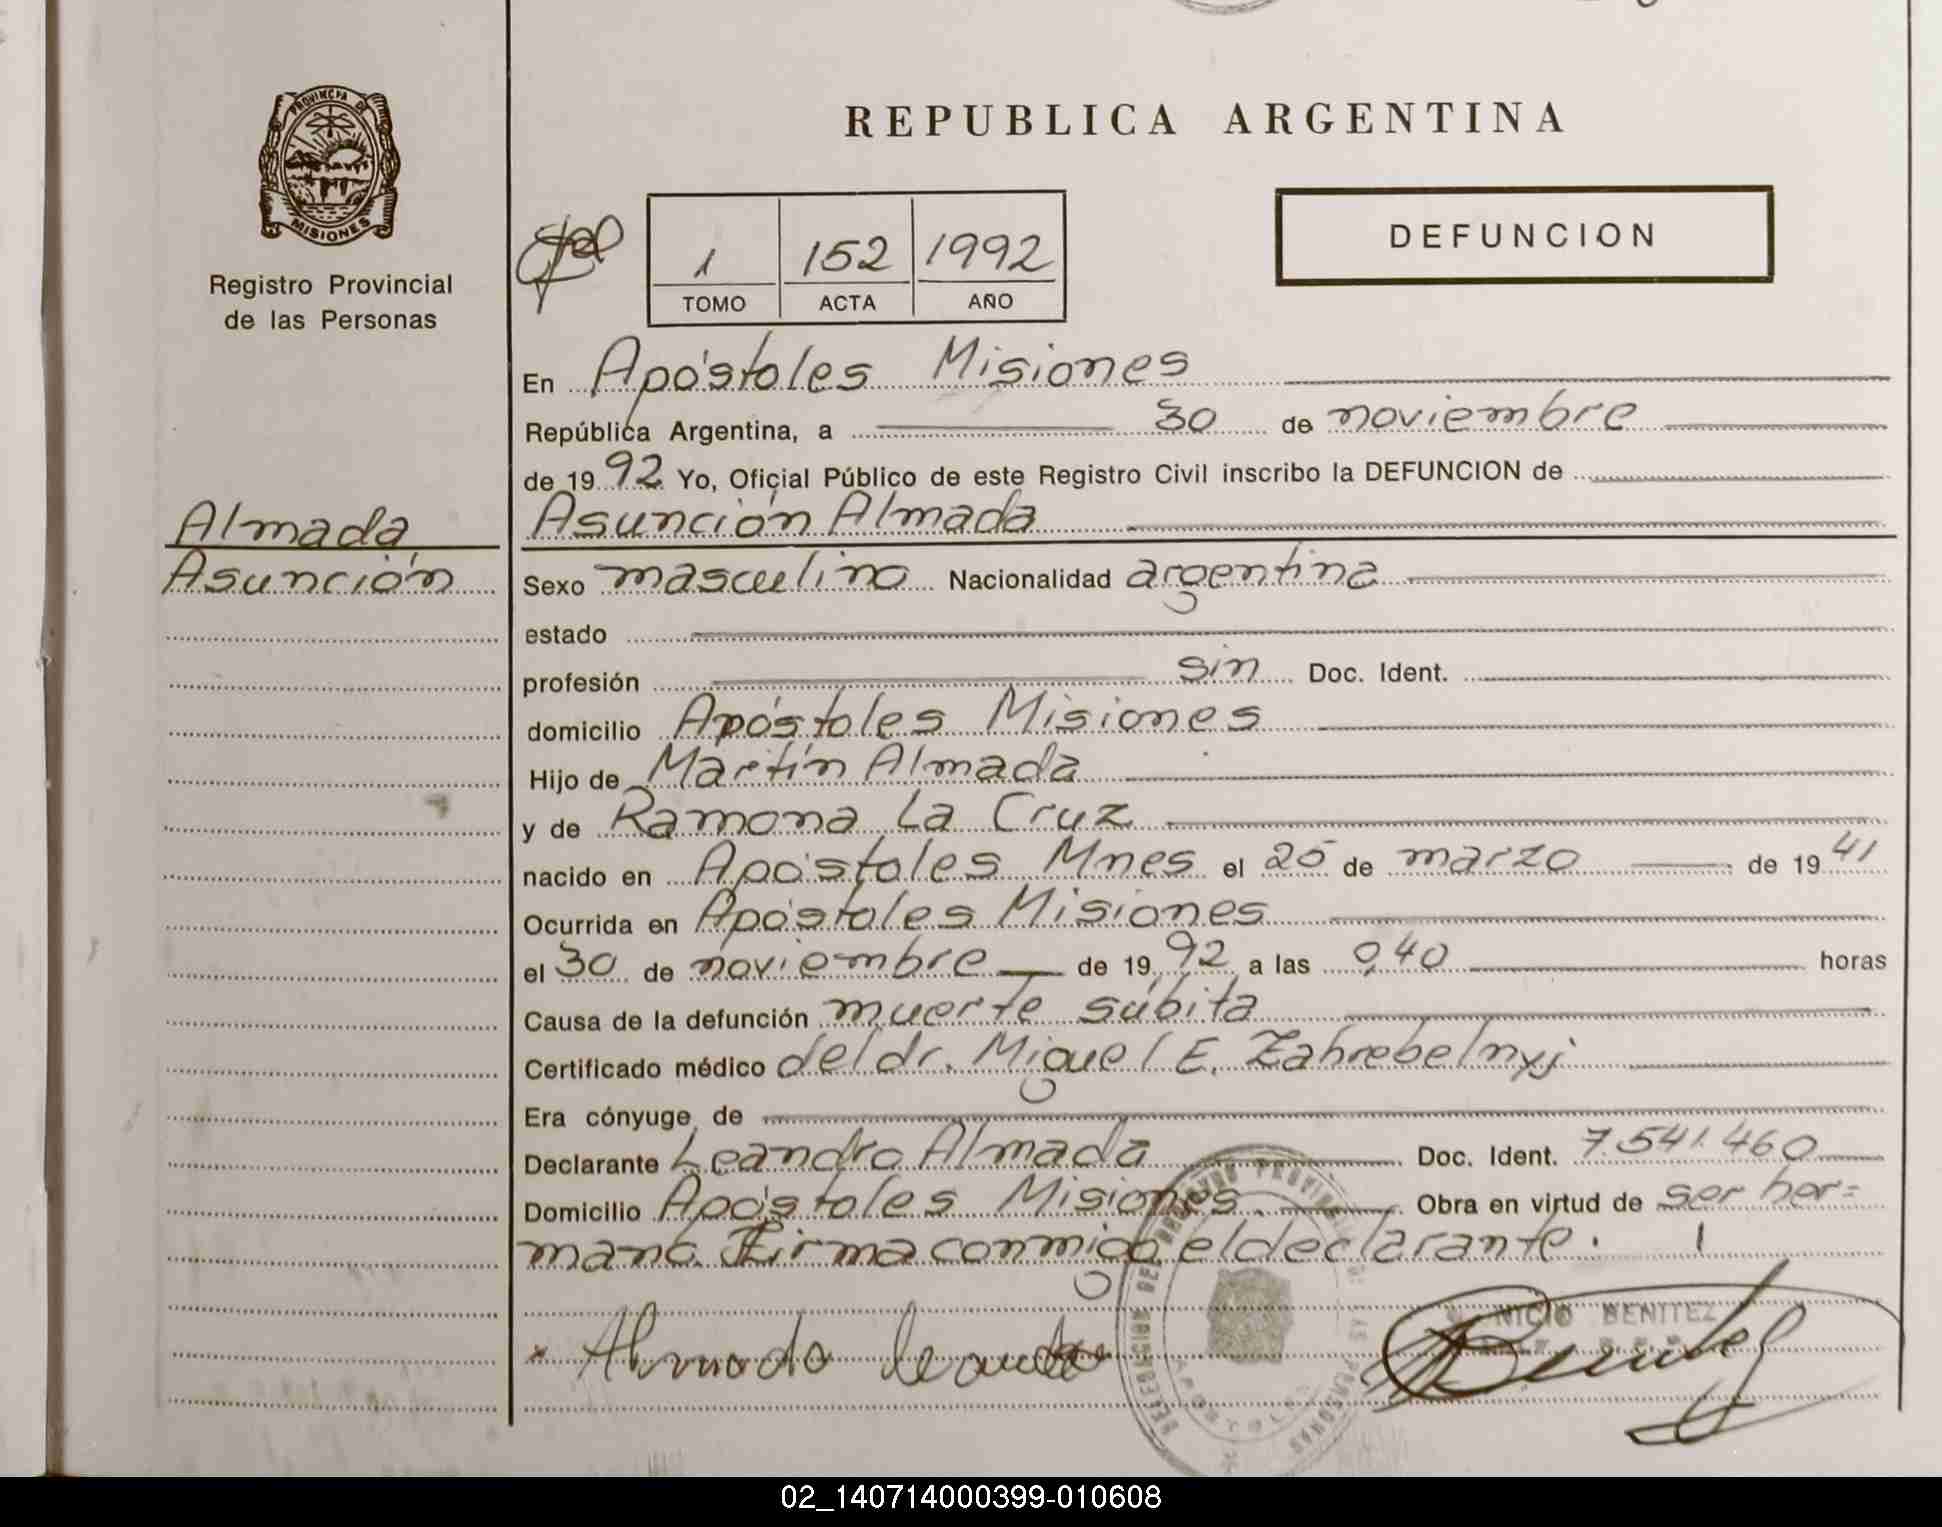 PROVINCIA DE
MISIONES
Registro Provincial
de las Personas
Almada
Asunción
REPUBLICA ARGENTINA
1 152 1992
TOMO ACTA AÑO
DEFUNCION
En Apóstoles Misiones
República Argentina, a 30 de noviembre
de 1992 Yo, Oficial Público de este Registro Civil inscribo la DEFUNCION de
Asunción Almada
Sexo masculino Nacionalidad argentina
estado
profesión sin Doc. Ident.
domicilio Apóstoles Misiones
Hijo de Martín Almada
y de Ramona La Cruz
nacido en Apóstoles Mnes el 25 de marzo de 1941
Ocurrida en Apóstoles Misiones
el 30 de noviembre de 1992 a las 0,40 horas
Causa de la defunción muerte súbita
Certificado médico del dr. Miguel E. Zahrebelnyj
Era cónyuge de
Declarante Leandro Almada Doc. Ident. 7.541.460
Domicilio Apóstoles Misiones. Obra en virtud de ser her=
mano. Firma conmigo el declarante.
Almada Leandro
BENITEZ
REGISTRO PROVINCIAL DE LAS PERSONAS
APOSTOLES
02_140714000399-010608